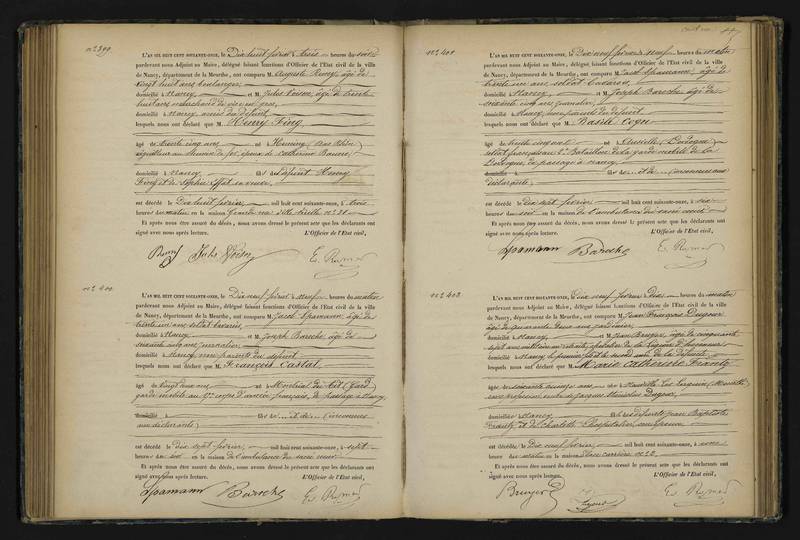 n° 399
L'AN MIL HUIT CENT SOIXANTE-ONZE, le Dix huit février à trois heures du soir
pardevant nous Adjoint au Maire, délégué faisant fonctions d'Officier de l'État civil de la ville
de Nancy, département de la Meurthe, ont comparu M. Auguste Remy, âgé de
vingt huit ans boulanger,
domicilié à Nancy et M. Jules Voirin, âgé de trente
huit ans marchand de vin en gros,
domicilié à Nancy, amis du défunt
lesquels nous ont déclaré que M. Henry Fing
âgé de trente cinq ans né à Hoerning Bas Rhin
au chemin de fer, époux de Catherine
domicilié à Nancy fils de défunt Henry
Fing et de Sophie sa veuve,
est décédé le Dix huit février mil huit cent soixante-onze, à trois
heures du matin en la maison Grande rue ville vieille n° 31
Et après nous être assuré du décès, nous avons dressé le présent acte que les déclarants ont
signé avec nous après lecture. L'Officier de l'État civil,
Remy Jules Voirin
n° 400
L'AN MIL HUIT CENT SOIXANTE-ONZE, le Dix neuf février à neuf heures du matin
pardevant nous Adjoint au Maire, délégué faisant fonctions d'Officier de l'État civil de la ville
de Nancy, département de la Meurthe, ont comparu M. Jacob Spamann, âgé de
trente un ans soldat bavarois,
domicilié à Nancy et M. Joseph Baroche, âgé de
soixante cinq ans journalier
domicilié à Nancy non parents du défunt
lesquels nous ont déclaré que M. François Castal
âgé de vingt deux ans né à Montréal du Gers
garde mobile au corps d'armée français, de passage à Nancy,
domicilié à fils de ... et de ... (inconnus
aux déclarants)
est décédé le dix sept février, mil huit cent soixante-onze, à sept
heures du soir en la maison de l'ambulance du sacré coeur
Et après nous être assuré du décès, nous avons dressé le présent acte que les déclarants ont
signé avec nous après lecture. L'Officier de l'État civil,
Spamann Baroche
n° 401
L'AN MIL HUIT CENT SOIXANTE-ONZE, le Dix neuf février à neuf heures du matin
pardevant nous Adjoint au Maire, délégué faisant fonctions d'Officier de l'État civil de la ville
de Nancy, département de la Meurthe, ont comparu M. Jacob Spamann, âgé de
trente un ans soldat bavarois,
domicilié à Nancy et M. Joseph Baroche âgé de
soixante cinq ans journalier,
domicilié à Nancy, non parents du défunt
lesquels nous ont déclaré que M. Basile
âgé de trente cinq ans né à Dordogne
soldat français au Bataillon de la garde mobile de la
Dordogne, de passage à Nancy,
domicilié à fils de ... et de ... (inconnus aux
déclarants)
est décédé le dix sept février, mil huit cent soixante-onze, à six
heures du soir en la maison de l'ambulance du sacré coeur
Et après nous être assuré du décès, nous avons dressé le présent acte que les déclarants ont
signé avec nous après lecture. L'Officier de l'État civil,
Spamann Baroche
L'AN MIL HUIT CENT SOIXANTE-ONZE, le Dix neuf février à Dix heures du matin
pardevant nous Adjoint au Maire, délégué faisant fonctions d'Officier de l'État civil de la ville
de Nancy, département de la Meurthe, ont comparu M. Jean François
âgé de quarante deux ans jardinier,
domicilié à Nancy et M. Jean Bruyer, âgé de cinquante
sept ans militaire en retraite, chevalier de la Légion d'honneur
domicilié à Nancy le premier fils et le second ami de la défunte
lesquels nous ont déclaré que M. Marie Catherine Frantz
âgée de soixante quinze ans née à
sans profession veuve de Jacques Stanislas
domiciliée à Nancy fille de défunts Jean Baptiste
Frantz et de Charlotte
est décédée le Dix neuf février, mil huit cent soixante-onze, à une
heure du matin en la maison Place carrière n° 2
Et après nous être assuré du décès, nous avons dressé le présent acte que les déclarants ont
signé avec nous après lecture. L'Officier de l'État civil,
Bruyer